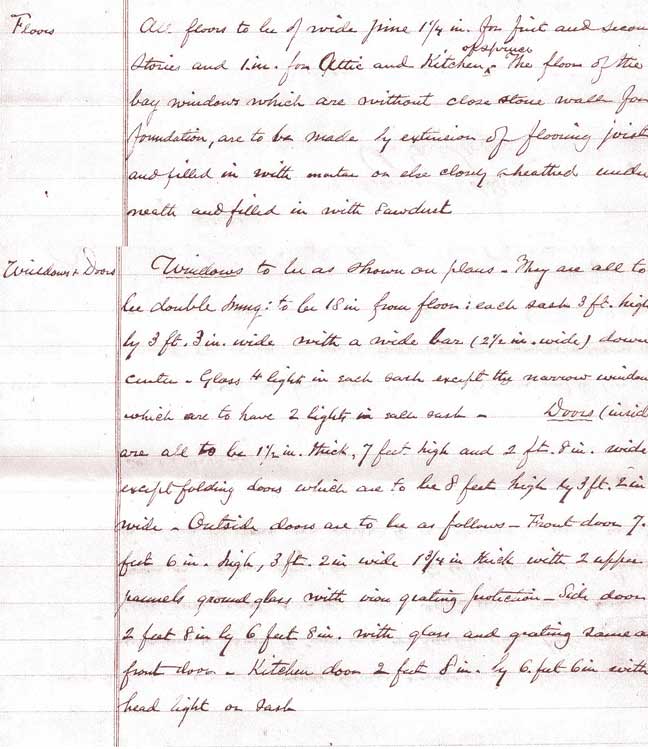 Floors
All floors to be of wide pine 1¼ in. for first and secon
stories and 1 in. for Attic and Kitchen of spruce - The floors of the
bay windows which are without close stone walls for
foundation, are to be made by extension of flooring joist
and filled in with mortar or else closely sheathed under
neath and filled in with sawdust
Windows & Doors
Windows to be as shown on plans - They are all to
be double hung: to be 18 in from floor: each sash 3 ft. high
by 3 ft. 3 in. wide with a wide bar (2½ in. wide) down
center - Glass 4 lights in each sash except the narrow window
which are to have 2 lights in each sash - Doors (insid
are all to be 1½ in. thick, 7 feet high and 2 ft. 8 in. wide
except folding doors which are to be 8 feet high by 3 ft. 2 in
wide - Outside doors are to be as follows - Front door 7.
feet 6 in. high, 3 ft. 2 in wide 1¾ in thick with 2 upper
pannels ground glass with iron grating protection - Side door
2 feet 8 in by 6 feet 8 in. with glass and grating same a
front door - Kitchen door 2 feet 8 in. by 6. feet 6 in with
head light or sash